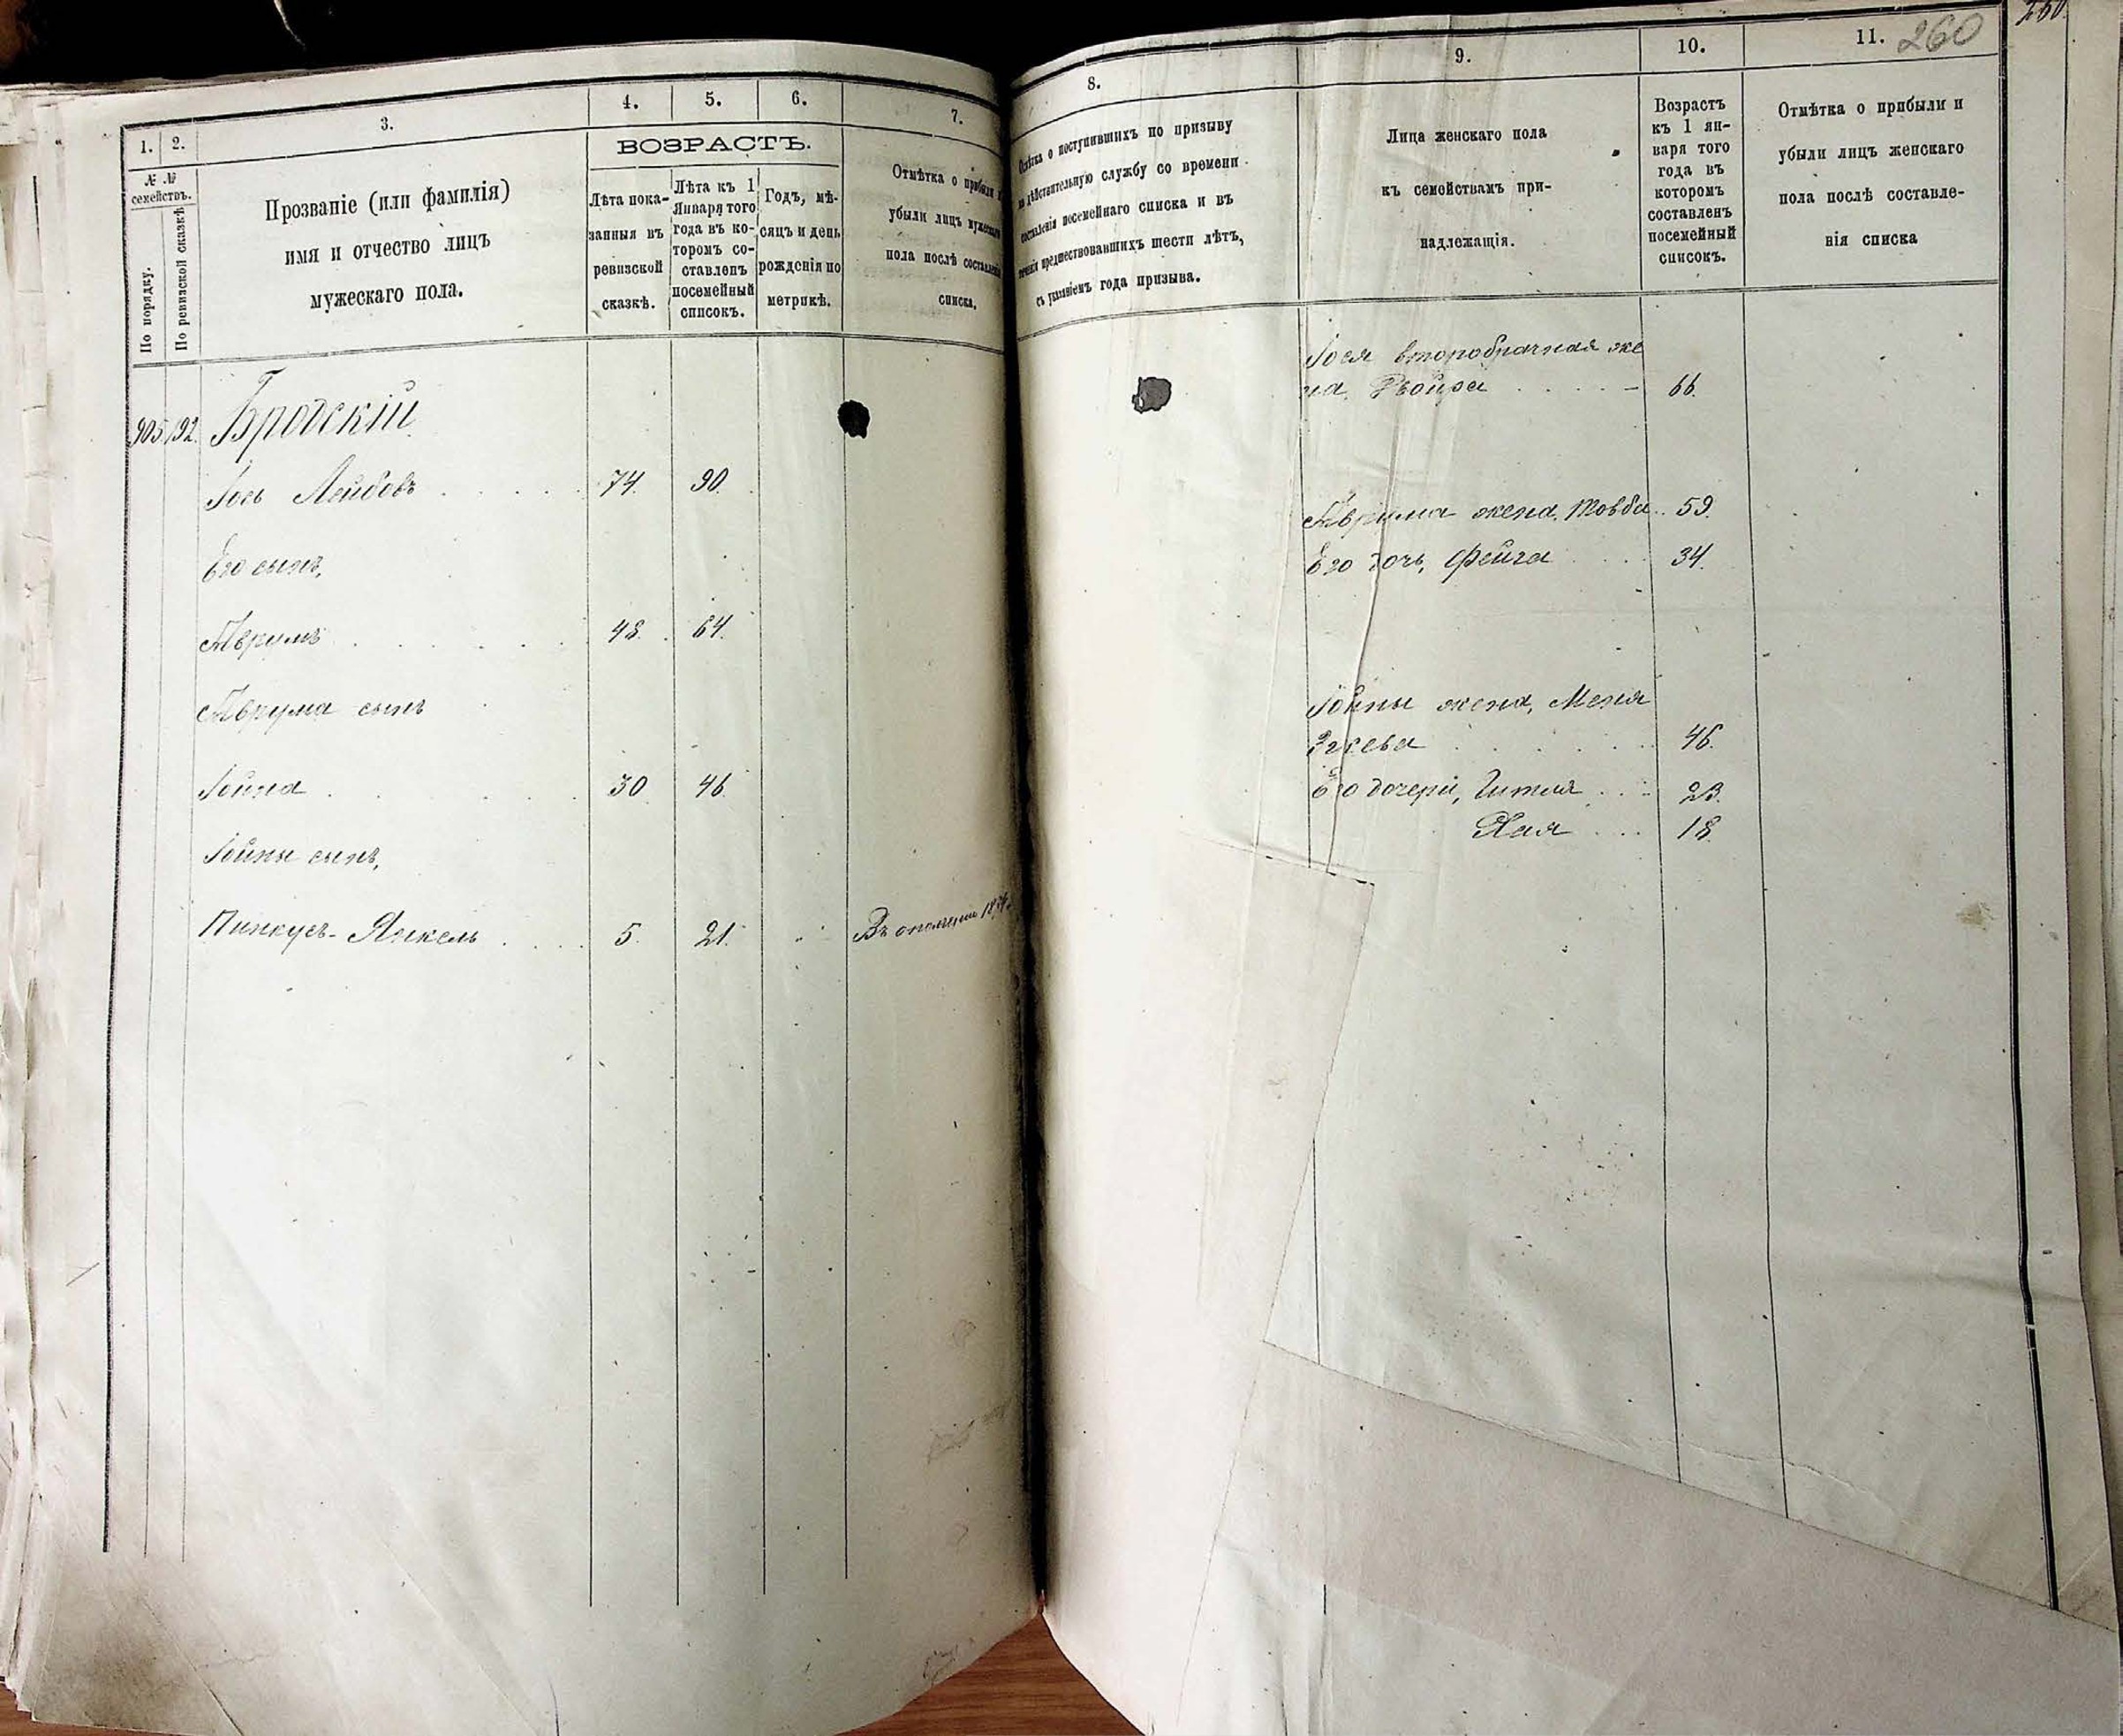 1. 2. 3. 4. 5. 6. 7.
ВОЗРАСТЪ.
№ №
семействъ.
По порядку.
По ревизской сказкѣ
Прозваніе (или фамилія)
имя и отчество лицъ
мужескаго пола.
Лѣта пока-
занныя въ
ревизской
сказкѣ.
Лѣта къ 1
Января того
года въ ко-
торомъ со-
ставленъ
посемейный
списокъ.
Годъ, мѣ-
сяцъ и день
рожденія по
метрикѣ.
Отмѣтка о прибыли и
убыли лицъ мужескаго
пола послѣ составленія
списка.
905 192. Бродскій
Іось Лейбовъ 74. 90.
Его сынъ,
Аврумъ 48. 64.
Аврума сынъ
Іойна 30 46.
Іойны сынъ,
Пинкусъ-Янкель 5. 21. Въ ополченіи
8. 9. 10. 11. 260
260.
Отмѣтка о поступившихъ по призыву
на дѣйствительную службу со времени
составленія посемейнаго списка и въ
теченіи предшествовавшихъ шести лѣтъ,
съ указаніемъ года призыва.
Лица женскаго пола
къ семействамъ при-
надлежащія.
Возрастъ
къ 1 ян-
варя того
года въ
которомъ
составленъ
посемейный
списокъ.
Отмѣтка о прибыли и
убыли лицъ женскаго
пола послѣ составле-
нія списка
Іося второбрачная же
на, Двойра 66.
Аврума жена, Товба 59.
Его дочь, Фейга 34.
Іойны жена, Меня
46.
Его дочери, Гитля 23.
Хая 18.